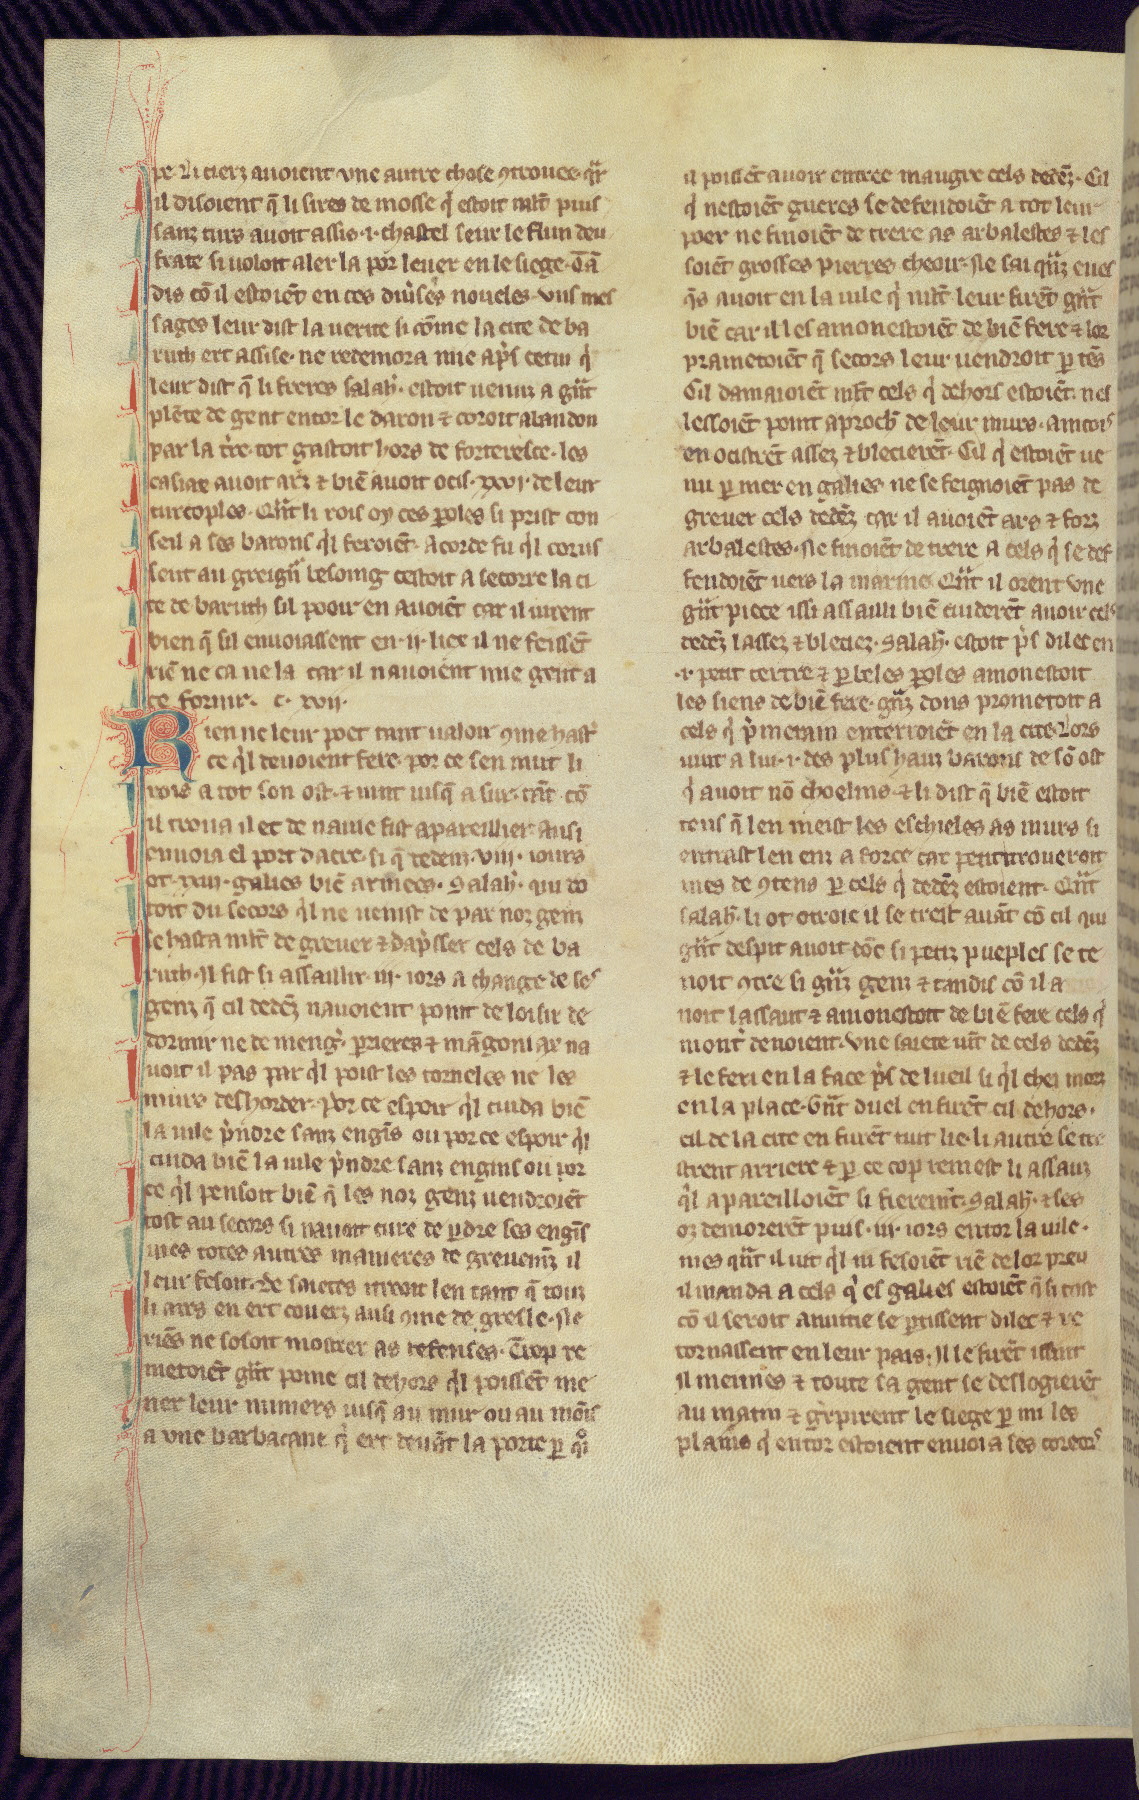 pe. Li tierz auoient vne autre chose ꝯtrouee. qͣr
il disoient q̄ li sires de mosse q̇ estoit mlt̄ puis
sanz turs auoit assis .i. chastel seur le flun deu
frate si uoloit aler la por leuer en le siege. Tā
dis cō il estoient en ces diu̾ses noueles. vns mes
sages leur dist la uerite si cōme la cite de ba
ruth ert assise. ne redemora mie ap̄s cetui q̇
leur dist q̄ li freres salah̄. estoit uenuz a gͣnt
plēte de gent entor le daron ⁊ coroit abandon
par la t̾re. tot gastoit hors de forteresce. les
casiax auoit arz ⁊ biē auoit ocis .xxxvi. de leur
turcoples. Qͣnt li rois oy ces ꝑoles si prist con
seil a ses barons q̇l feroiēt. acorde fu q̇l corus
sent au greign̾ besoing cestoit a secorre la ci
te de baruth sil pooir en auoiēt car il uirent
bien q̄ sil enuoiassent en .ii. liex il ne feissēt
riē ne ca ne la car il nauoient mie gent a
ce fornir. c. xvii.
Rien ne leur poet tant ualoir ꝯme hast̾
ce q̇l deuoient fere. por ce sen mut li
rois a tot son ost. ⁊ uint iusq̄ a sur. tāt cō
il troua ilec de nauie fist apareillier ausi
enuoia el port dacre. si q̄ dedenz .viii. iours
ot .xxxiii. galies biē armees. Salah̄. qui do
toit du secors q̇l ne uenist de par noz genz
se hasta mlt̄ de greuer ⁊ dap̄sser cels de ba
ruth. Il fist si assaillir .iii. iors a change de ses
genz q̄ cil dedēz nauoient point de loisir de
dormir ne de meng̾. ꝑrieres ⁊ māgoniax na
uoit il pas par q̇l poist les torneles ne les
murs deshorder. por ce espoir q̇l cuida biē
la uile p̄ndre sanz engīs ou por ce espoir q̇l
cuida biē la uile p̄ndre sanz engins ou por
ce q̇l pensoit biē q̄ les noz genz uendroiēt
tost au secors si nauoit cure de ꝑdre ses engīs
mes totes autres manieres de greuemēz il
leur fesoit. de saietes itreoit len tant q̄ touz
li airs en ert couerz ausi ꝯme de gresle. Ne
riēs ne sosoit mostrer as defenses. Trop re
metoiēt gͣnt poine cil dehors q̇l poissēt me
ner leur mineirs iusq̄ au mur ou au moīs
a vne barbacane q̇ ert deuāt la porte ꝑ qͦi
il poissēt auoir entree maugre cels dedēz. Cil
q̇ nestoiēt gueres se defendoiēt a tot leur
poer ne finoiēt de trere as arbalestes ⁊ les
soiēt grosses pierres cheoir. Ne sai qͣnz eues
q̄s auoit en la uile q̇ mlt̄ leur firēt gͣnt
biē car il les amonestoiēt de biē fere ⁊ lor
prametoiēt q̄ secors leur uendroit ꝑ tēs
Cil damaioiēt mlt̄ cels q̇ dehors estoiēt. nes
lessoiēt point aproch̾ de leur murs. aincois
en ocistrēt assez ⁊ blecierēt. Cil q̇ estoiēt ue
nu ꝑ mer en galies ne se feignoiēt pas de
greuer cels dedēz car il auoiēt ars ⁊ forz
arbalestes. Ne finoiēt de trere a cels q̇ se def
fendoiēt uers la marine. Qͣnt il orent vne
gͣnt piece issi assailli biē cuiderēt auoir cels
dedēz lassez ⁊ bleciez. Salah̄. estoit p̄s dilec en
.i. petit tertre ⁊ ꝑ beles ꝑoles amonestoit
les siens de biē fere. gͣnz dons prometoit a
cels q̇ p̄merain enterroiēt en la cite. Lors
uint a lui .i. des plus hauz barons de sō ost
q̇ auoit nō choelins ⁊ li dist q̄ biē estoit
tens q̄ len meist les eschieles as murs si
entrast len enz a force car petit troueroit
mes de ꝯtens ꝑ cels q̇ dedēz estoient. Qͣnt
salah̄. li ot otroie il se treist auāt cō cil qui
gͣnt despit auoit dōt si petiz pueples se te
noit ꝯtre si gͣnz genz ⁊ tandis cō il a
noit lassaut ⁊ amonestoit de biē fere cels q̇
mont̾ deuoient. vne saiete uīt de cels dedēz
⁊ le feri en la face p̄s de lueil si q̇l chei morz
en la place. Gͣnt duel en firēt cil dehors.
cil de la cite en furēt tuit lie. li autre se tre
istrent arriere ⁊ ꝑ ce cop remest li assauz
q̇l apareilloiēt si fieremēt. Salah̄. ⁊ ses
oz demorerēt puis .iii. iors entor la uile.
mes qͣnt il uit q̇l ni fesoiēt riē de lor preu
il manda a cels q̇ es galies estoiēt q̄ si tost
cō il seroit anuitie se ꝑtissent dilec ⁊ re
tornassent en leur pais. Il le firēt issint
Il meimes ⁊ toute sa gent se deslogierēt
au matin ⁊ g̾rpirent le siege ꝑ mi les
plains q̇ entor estoient enuoia ses coreors